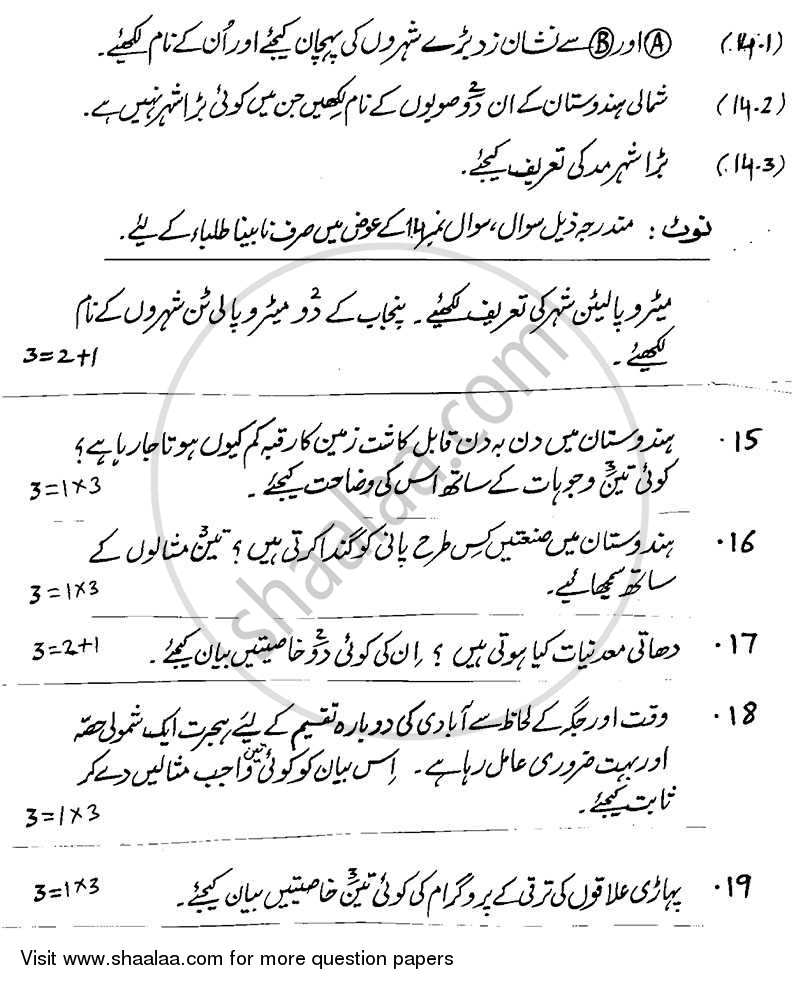 (14.1) Ⓐ اور Ⓑ سے نشان زد بڑے شہروں کی پہچان کیجئے اور اُن کے نام لکھیئے۔
(14.2) شمالی ہندوستان کے ان دو2 صوبوں کے نام لکھیں جن میں کوئی بڑا شہر نہیں ہے۔
(14.3) بڑا شہر مد کی تعریف کیجئے۔
نوٹ : مندرجہ ذیل سوال، سوال نمبر 14 کے عوض میں صرف نابینا طلباء کے لیئے۔
میٹروپالیٹن شہر کی تعریف لکھیئے۔ پنجاب کے دو2 میٹروپالی ٹن شہروں کے نام
لکھیئے۔ 3=2+1
15. ہندوستان میں دن بہ دن قابل کاشت زمین کا رقبہ کم کیوں ہوتا جا رہا ہے؟
کوئی تین3 وجوہات کے ساتھ اس کی وضاحت کیجئے۔ 3=1×3
16. ہندوستان میں صنعتیں کس طرح پانی کو گندا کرتی ہیں؟ تین3 مثالوں کے
ساتھ سمجھائیے۔ 3=1×3
17. دھاتی معدنیات کیا ہوتی ہیں؟ اِن کی کوئی دو2 خاصیتیں بیان کیجئے۔ 3=2+1
18. وقت اور جگہ کے لحاظ سے آبادی کی دوبارہ تقسیم کے لیئے ہجرت ایک شمولی حصّہ
اور بہت ضروری عامل رہا ہے۔ اِس بیان کو کوئی تین واجب مثالیں دے کر
ثابت کیجئے۔ 3=1×3
19. پہاڑی علاقوں کی ترقی کے پروگرام کی کوئی تین3 خاصیتیں بیان کیجئے۔ 3=1×3
shaalaa.com
Visit www.shaalaa.com for more question papers